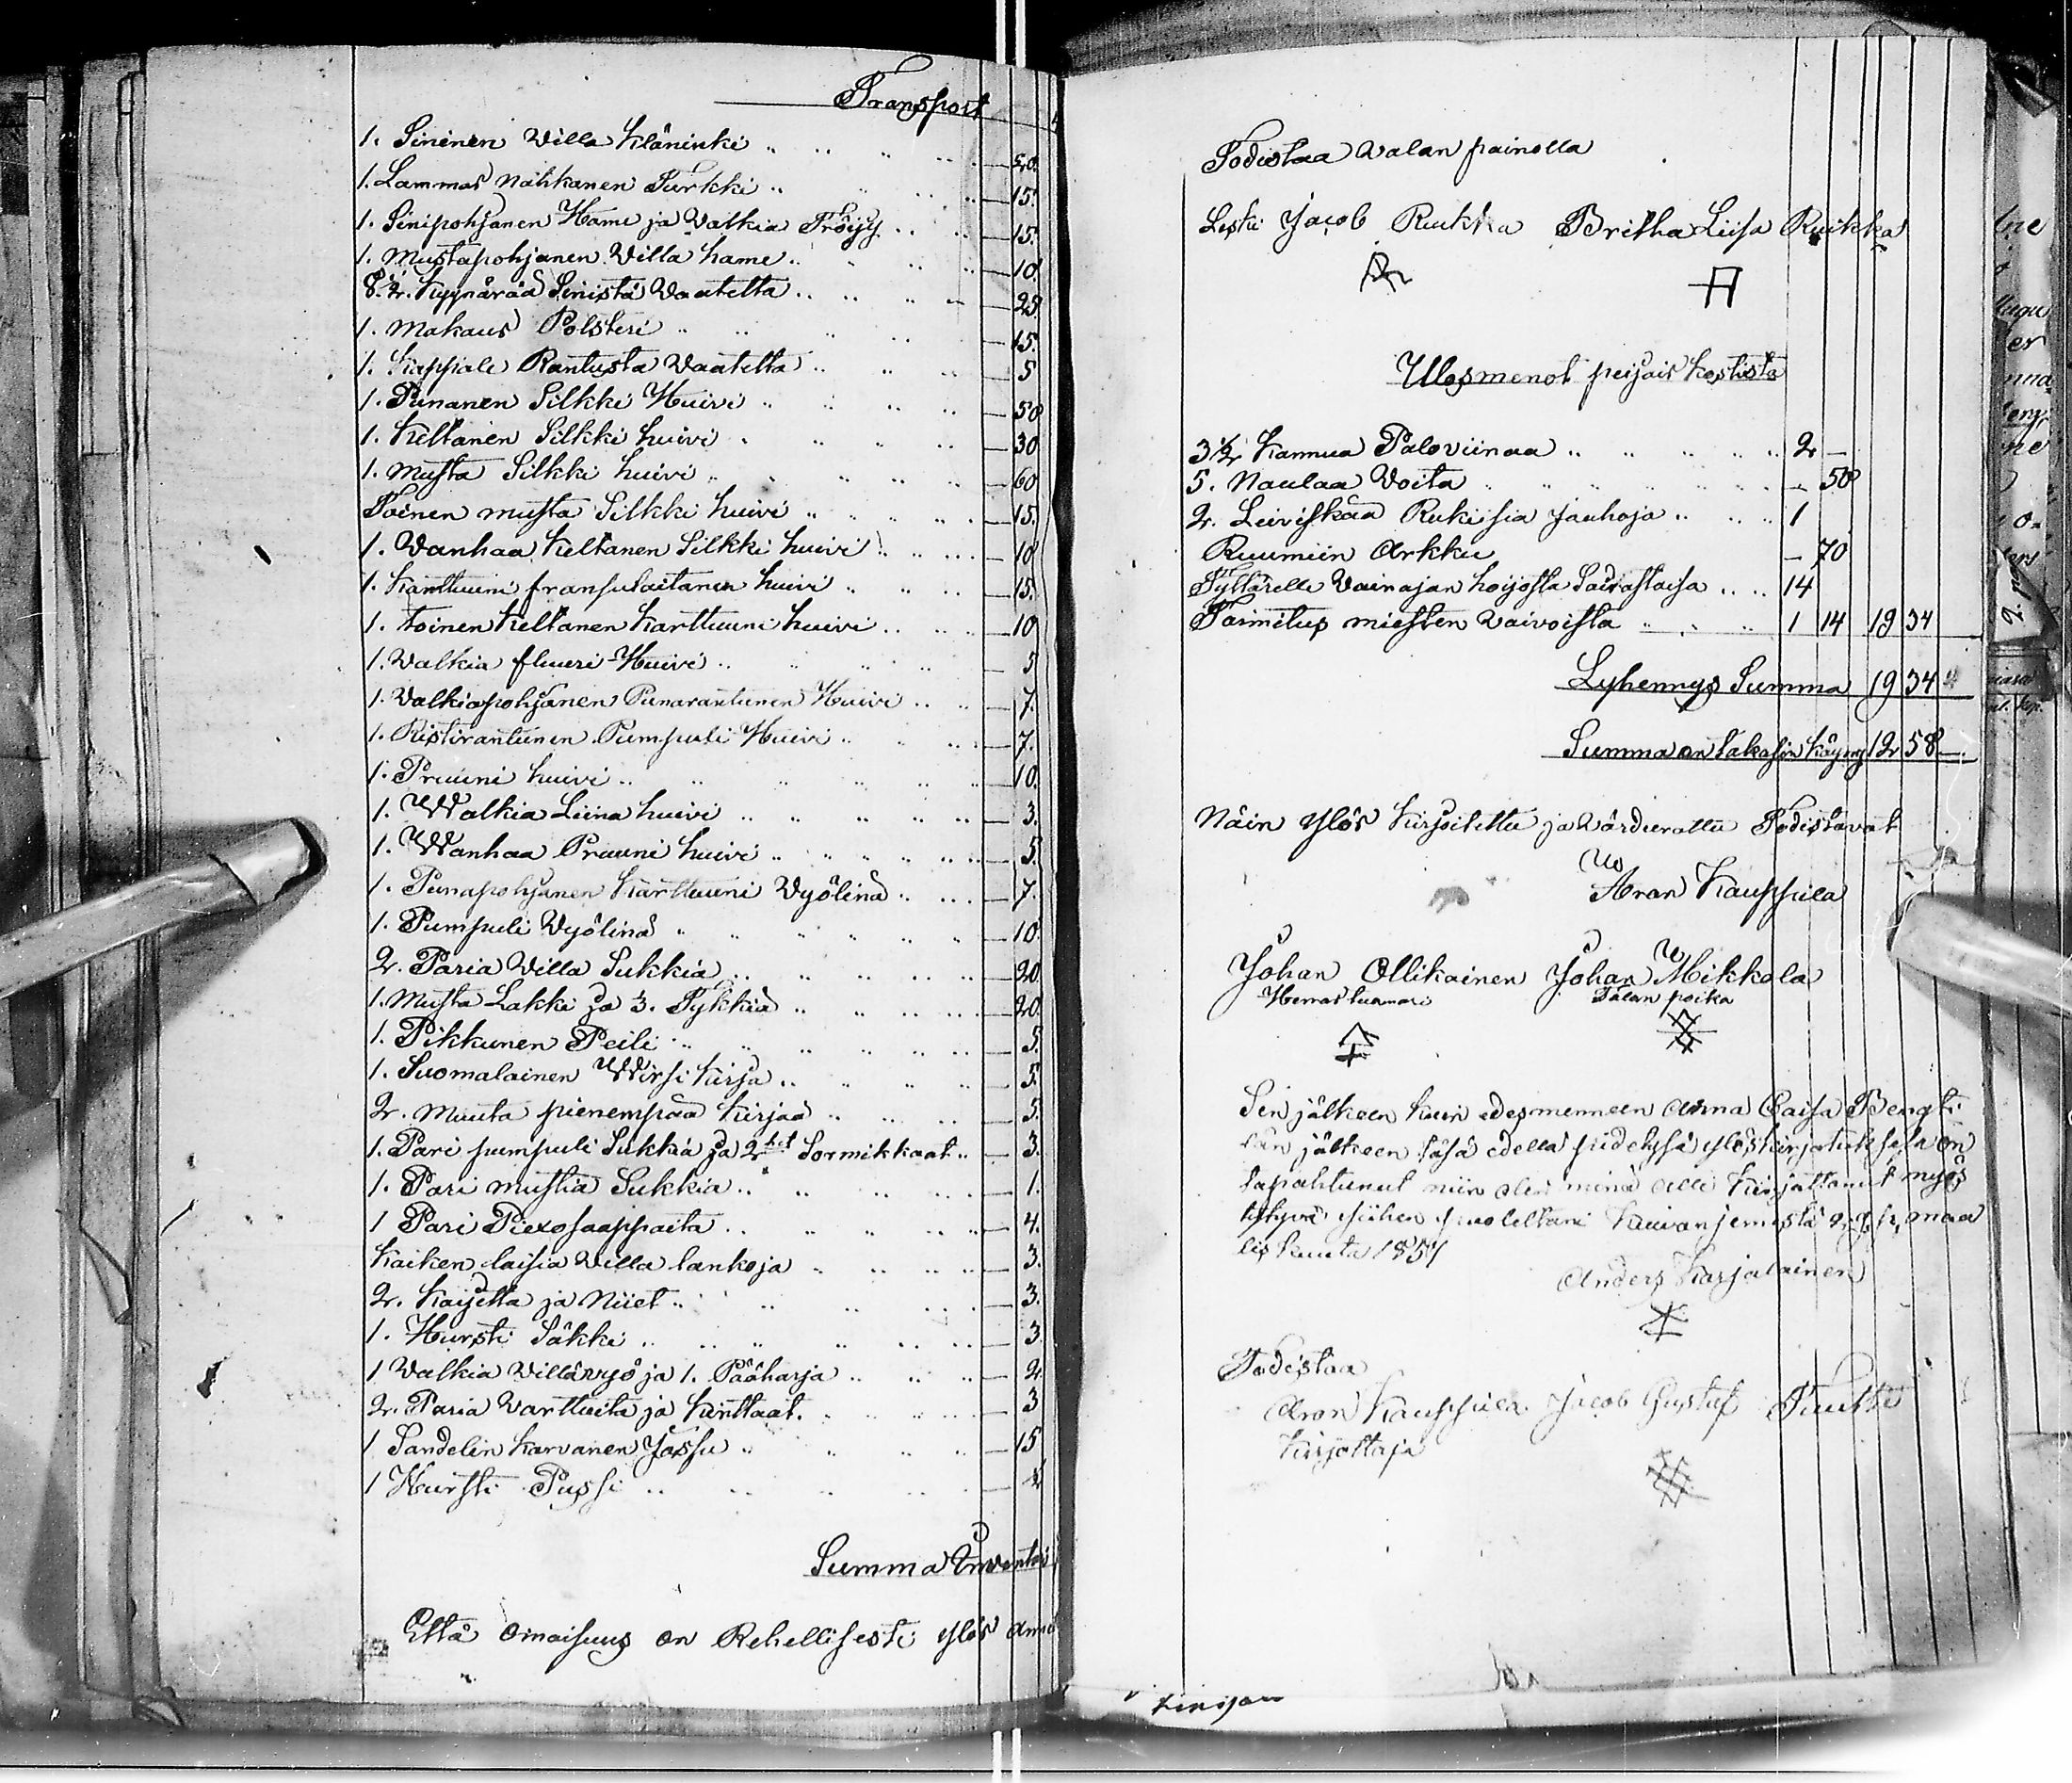 Transport
1. Sininen Villa Kläninki — 50.
1. Lammas nahkanen Turkki — 15.
1. Sinipohjanen Hame ja Valkia Tröijy — 15.
1. Mustapohjanen Villa hame — 10
8. Kyynärää Sinistä Vaatetta — 25.
1. Makaus Polsteri — 15.
1. Kappale Rantusta Vaatetta — 5
1. Punanen Silkki Huivi — 50
1. Keltanen Silkki huivi — 30
1. Musta Silkki huivi — 60
Toinen musta Silkki huivi — 15.
1. Vanhaa Keltanen Silkki huivi — 10
1. Karttuuni fransulaitanen huivi — 15.
1. toinen Keltanen Karttuuni huivi — 10
1. Valkia fluuri Huivi — 5
1. Valkiapohjanen Punarantunen Huivi — 7.
1. Ristirantunen Pumpuli Huivi — 7.
1. Pruuni huivi — 10.
1. Walkia Liina huivi — 3.
1. Wanhaa Pruuni huivi — 5.
1. Punapohjanen Karttuuni Vyölinä — 7.
1. Pumpuli Vyölinä — 10.
2. Paria Villa Sukkia — 20.
1. Musta Lakki ja 3. Tykkiä — 20.
1. Pikkunen Peili — 5.
1. Suomalainen Wirsi Kirja — 5.
2. Muuta pienempää Kirjaa — 5.
1. Pari pumpuli Sukkia ja 2het Sormikkaat — 3.
1. Pari mustia Sukkia — 1.
1 Pari Piexosaappaita — 4.
Kaiken laisia Villa lankoja — 3.
2. Kaijetta ja Niiet — 3.
1. Hursti Säkki — 3.
1 Valkia Villävyö ja 1. Pääharja — 2
2. Paria Varttuita ja Kinttaat — 3
1 Sandelin Karvanen Jassu — 15
1 Hursti Pussi
Summa Inventari
Että Omaisuus on Rehellisesti ylös
Todistaa Valan painolla
Leski Jacob Ruikka Britha Liisa Ruikka
Ulosmenot peijais Kostista
3 1/2 Kannua Paloviinaa 2 —
5. Naulaa Voita — 50
2. Leiviskää Rukisia Jauhoja 1
Ruumiin Arkku — 70
Tyttärelle Vainajan hoijosta Sairastaisa 14
Toimitus miesten Vaivoista 1 14 19 34
Lyhennys Summa 19 34
Summa on takasin Käyny 12 58 —
Näin ylös Kirjoitettu ja Värderattu Todistavat
Aron Kauppila
Johan Ollikainen Johan Mikkola
Herastuomari Talan poika
Sen jälkeen Kuin edesmenneen Anna Caisa Bengti
tän jälkeen täsä edellä ylöskirjotuksesa on
tapahtunut niin olen minä alle Kirjottanut myös
tytyvä siihen puoleltani Kuivanjemistä
lis kuuta 1857
Anders Karjalainen
Todistaa
Aron Kauppila Jacob Gustaf Tuutti
Kirjottaja